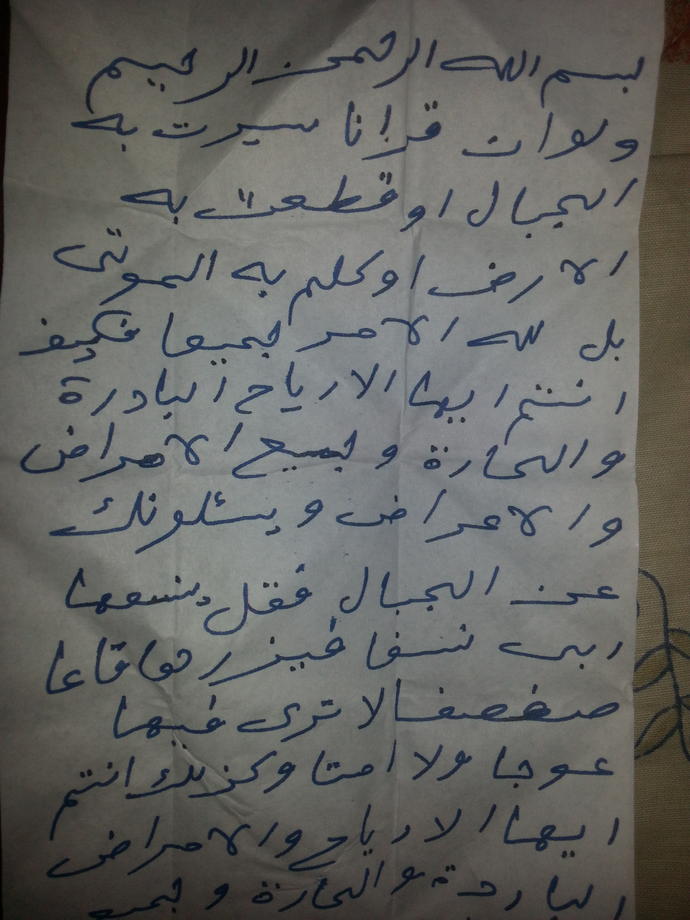 بسم الله الرحمن الرحيم
ولوان قرانا سيرت به
الجبال او قطعت به
الارض او كلم به الموتى
بل لله الامر جميعا فكيف
انتم ايها الارياح البادرة
والحارة و جميع الامراض
والاعراض ويسئلونك
عن الجبال فقل ينسفها
ربى نسفا فيذرها قاعا
صفصفا لا ترى فيها
عوجا ولا امتا وكذلك انتم
ايها الارياح والامراض
الباردة والحارة و